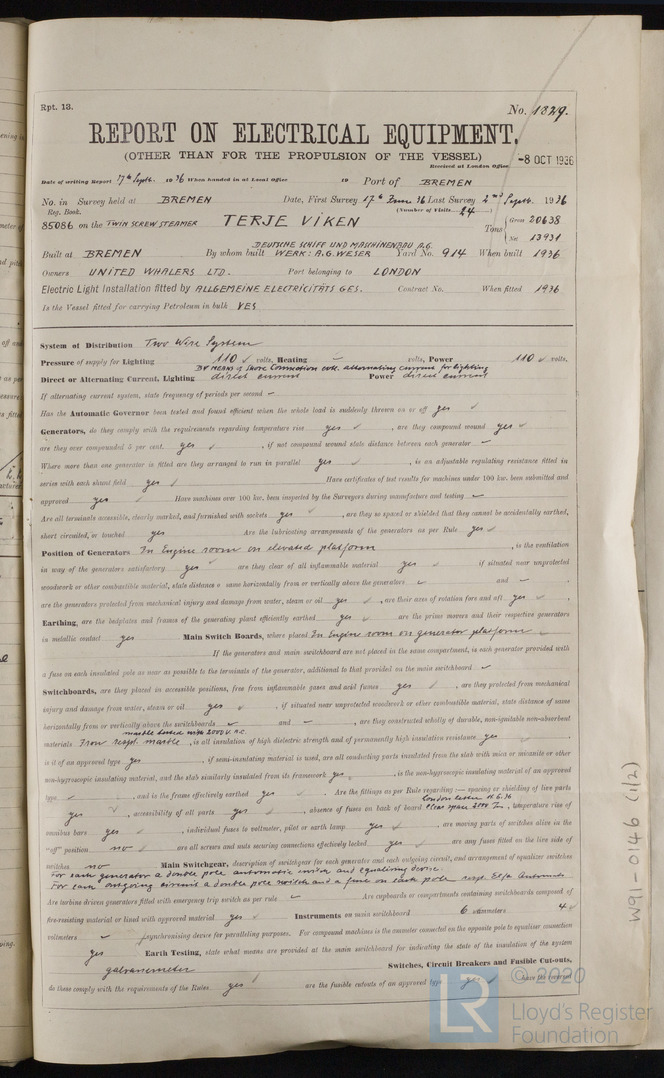 Rpt. 13.
No. 1829.
REPORT ON ELECTRICAL EQUIPMENT.
(OTHER THAN FOR THE PROPULSION OF THE VESSEL)
Received at London Office -8 OCT 1936
Date of writing Report 7th Septb. 1936 When handed in at Local Office 19 Port of BREMEN
No. in Survey held at BREMEN Date, First Survey 17th June 36 Last Survey 2nd Septb. 1936
Reg. Book. (Number of Visits 24)
85086 on the TWIN SCREW STEAMER TERJE VIKEN Tons { Gross 20638
Net 13931
Built at BREMEN By whom built DEUTSCHE SCHIFF UND MASCHINENBAU A.G. WERK: A.G. WESER Yard No. 914 When built 1936
Owners UNITED WHALERS LTD. Port belonging to LONDON
Electric Light Installation fitted by ALLGEMEINE ELECTRICITÄTS GES. Contract No. When fitted 1936
Is the Vessel fitted for carrying Petroleum in bulk YES
System of Distribution Two Wire System
Pressure of supply for Lighting 110 volts, Heating volts, Power 110 volts.
By means of shore connection alternating current for lighting
Direct or Alternating Current, Lighting direct current Power direct current
If alternating current system, state frequency of periods per second
Has the Automatic Governor been tested and found efficient when the whole load is suddenly thrown on or off yes
Generators, do they comply with the requirements regarding temperature rise yes, are they compound wound yes
are they over compounded 5 per cent. yes, if not compound wound state distance between each generator
Where more than one generator is fitted are they arranged to run in parallel yes, is an adjustable regulating resistance fitted in
series with each shunt field yes Have certificates of test results for machines under 100 kw. been submitted and
approved yes Have machines over 100 kw. been inspected by the Surveyors during manufacture and testing
Are all terminals accessible, clearly marked, and furnished with sockets yes, are they so spaced or shielded that they cannot be accidentally earthed,
short circuited, or touched yes Are the lubricating arrangements of the generators as per Rule yes
Position of Generators In Engine room on elevated platform, is the ventilation
in way of the generators satisfactory yes are they clear of all inflammable material yes if situated near unprotected
woodwork or other combustible material, state distance of same horizontally from or vertically above the generators and
are the generators protected from mechanical injury and damage from water, steam or oil yes, are their axes of rotation fore and aft yes
Earthing, are the bedplates and frames of the generating plant efficiently earthed yes are the prime movers and their respective generators
in metallic contact yes Main Switch Boards, where placed In Engine room on generator platform
If the generators and main switchboard are not placed in the same compartment, is each generator provided with
a fuse on each insulated pole as near as possible to the terminals of the generator, additional to that provided on the main switchboard
Switchboards, are they placed in accessible positions, free from inflammable gases and acid fumes yes, are they protected from mechanical
injury and damage from water, steam or oil yes, if situated near unprotected woodwork or other combustible material, state distance of same
horizontally from or vertically above the switchboards and, are they constructed wholly of durable, non-ignitable non-absorbent
marble tested with 2000 V. A.C.
materials Iron resp. marble, is all insulation of high dielectric strength and of permanently high insulation resistance yes
is it of an approved type yes, if semi-insulating material is used, are all conducting parts insulated from the slab with mica or micanite or other
non-hygroscopic insulating material, and the slab similarly insulated from its framework yes, is the non-hygroscopic insulating material of an approved
type, and is the frame effectively earthed yes Are the fittings as per Rule regarding:— spacing or shielding of live parts
yes, accessibility of all parts yes, absence of fuses on back of board, temperature rise of
omnibus bars yes, individual fuses to voltmeter, pilot or earth lamp yes, are moving parts of switches alive in the
"off" position no are all screws and nuts securing connections effectively locked yes are any fuses fitted on the live side of
switches no Main Switchgear, description of switchgear for each generator and each outgoing circuit, and arrangement of equaliser switches
For each generator a double pole automatic switch and equalising device.
For each outgoing circuit a double pole switch and a fuse on each pole resp. Elfa Automats
Are turbine driven generators fitted with emergency trip switch as per rule Are cupboards or compartments containing switchboards composed of
fire-resisting material or lined with approved material yes Instruments on main switchboard 6 ammeters 4
voltmeters synchronising device for paralleling purposes. For compound machines is the ammeter connected on the opposite pole to equaliser connection
yes Earth Testing, state what means are provided at the main switchboard for indicating the state of the insulation of the system
galvanometer Switches, Circuit Breakers and Fusible Cut-outs,
do these comply with the requirements of the Rules yes are the fusible cutouts of an approved type yes have the reversed
W91-0146 (1/2)
LR
© 2020
Lloyd's Register
Foundation